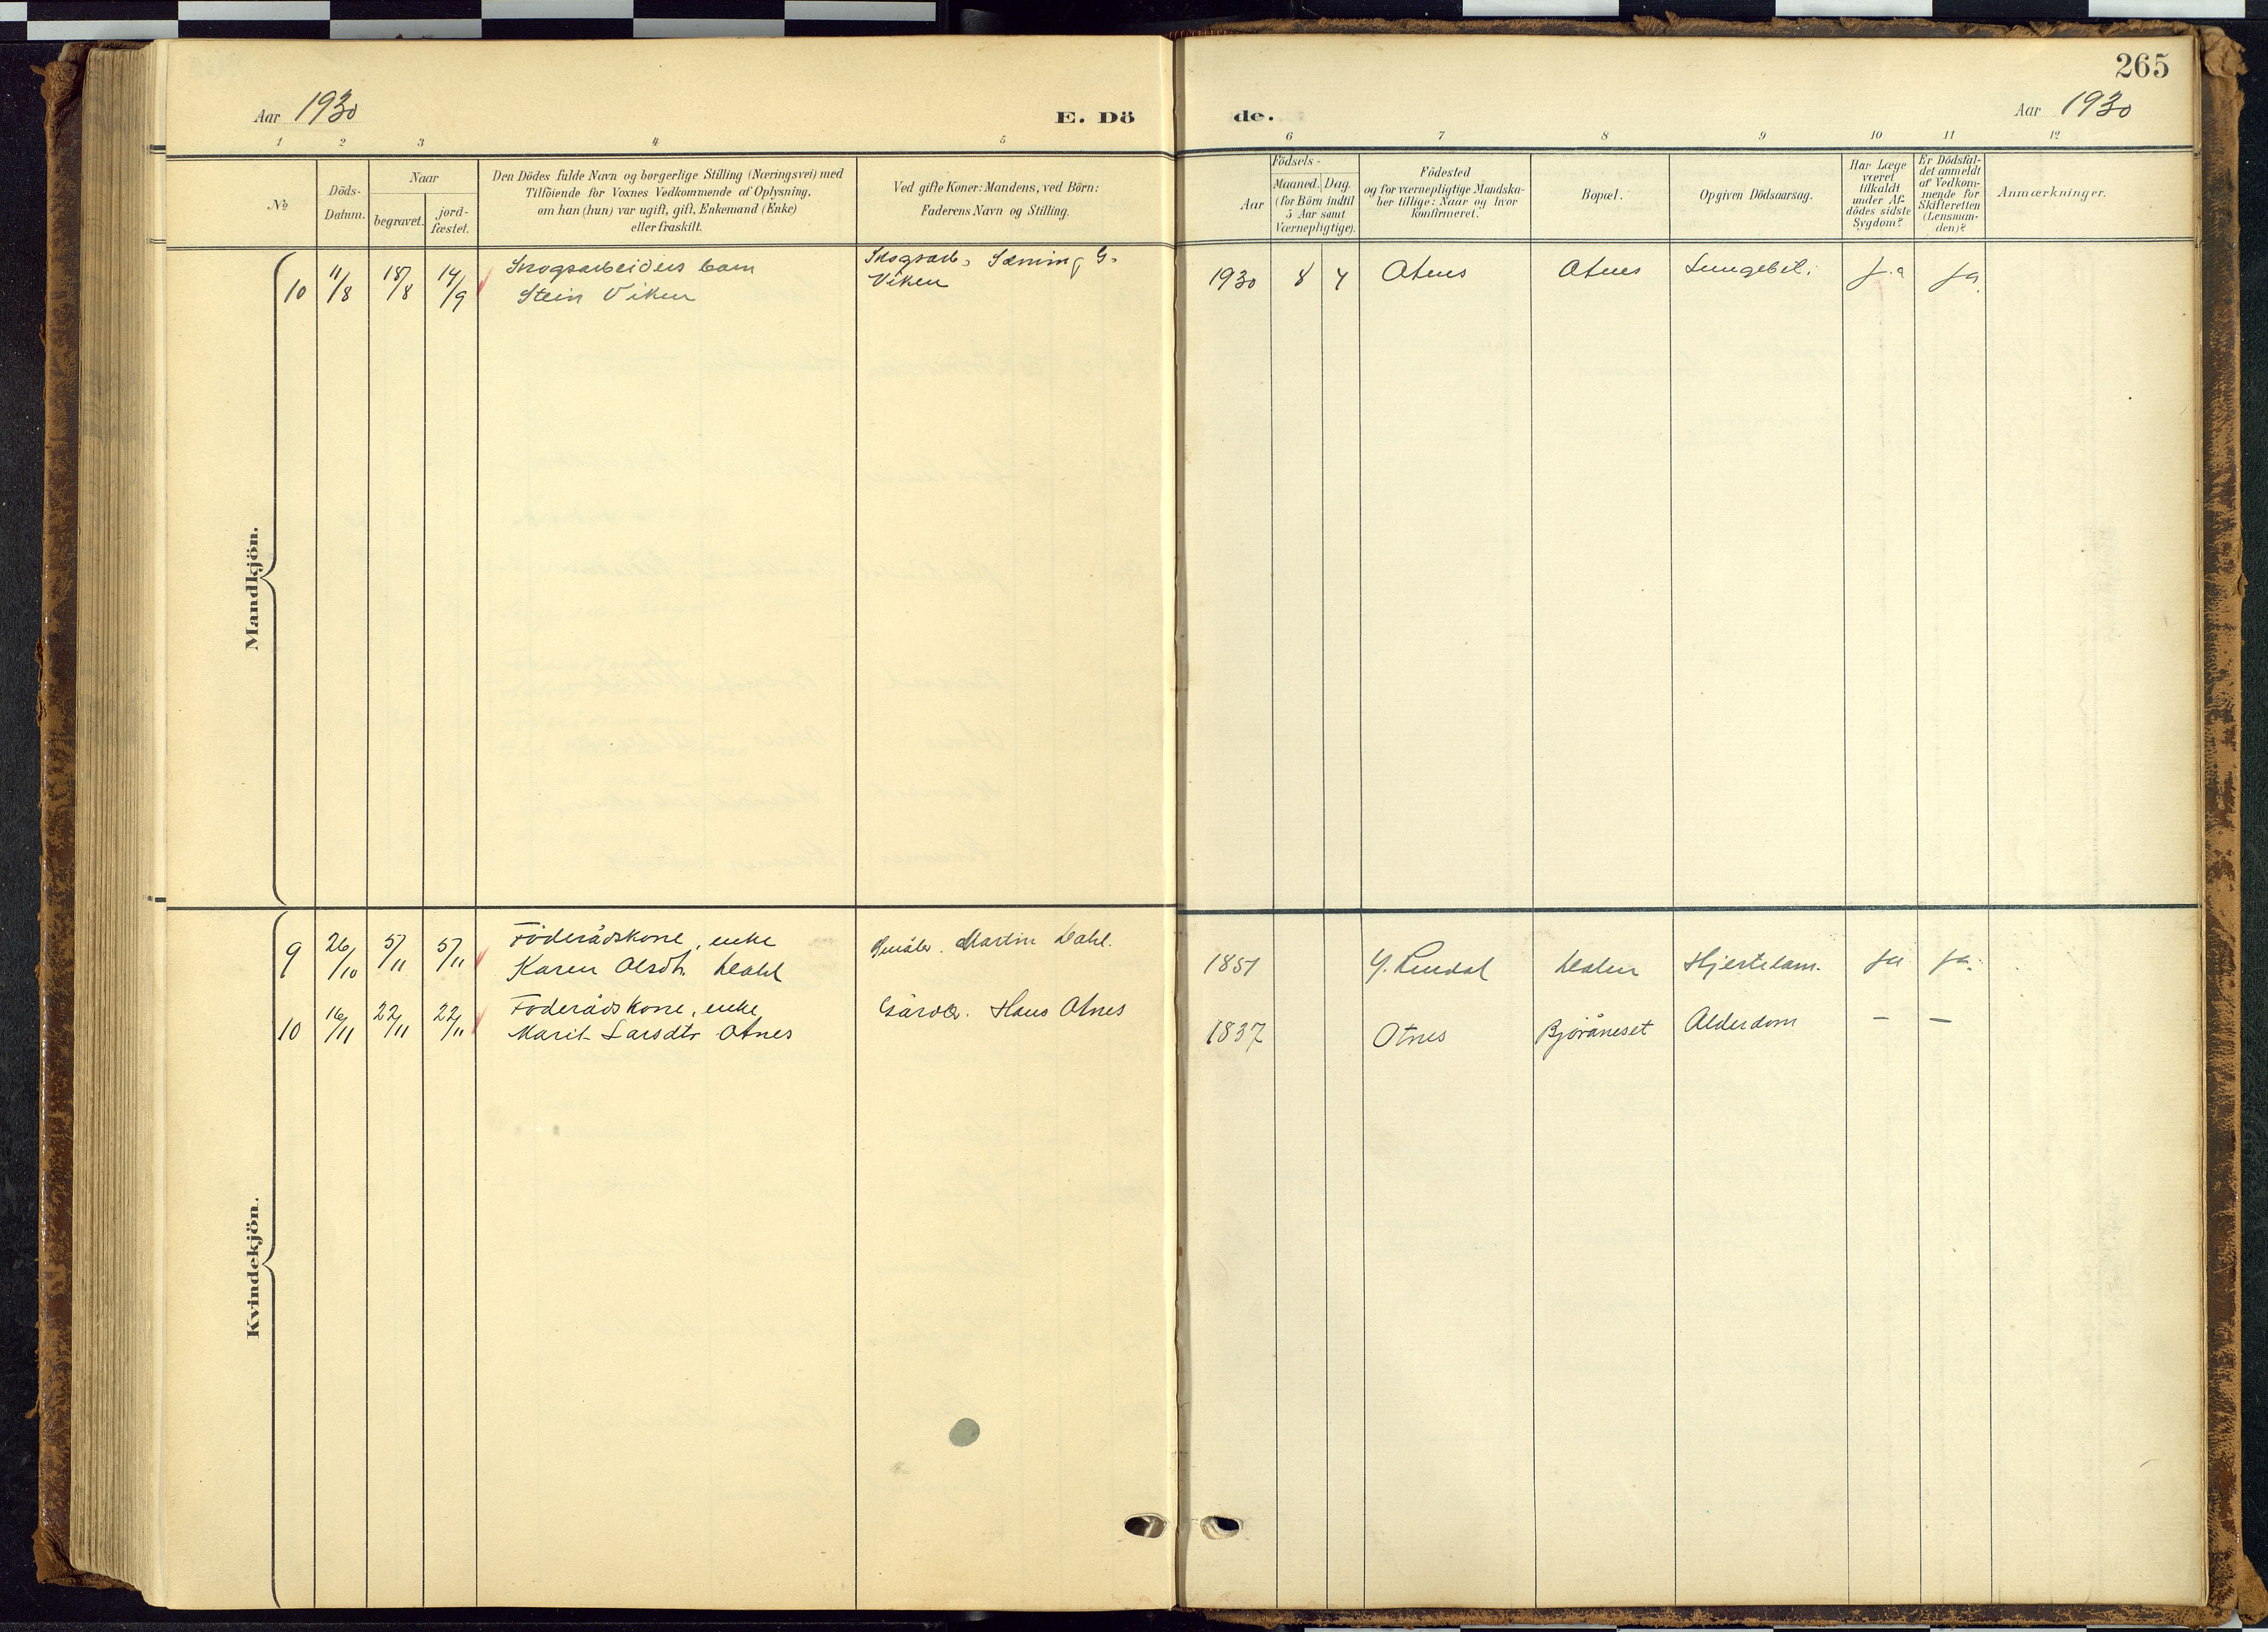 265
Aar 1930
E. Dö
de.
Aar 1930
1 2 3 4 5 6 7 8 9 10 11 12
No
Döds-
Datum.
Naar
begravet.
jord-
fæstet.
Den Dödes fulde Navn og borgerlige Stilling (Næringsvei) med
Tilföiende for Voxnes Vedkommende af Oplysning.
om han (hun) var ugift, gift, Enkemand (Enke)
eller fraskilt.
Ved gifte Koner: Mandens, ved Börn:
Faderens Navn og Stilling.
Födsels-
Aar
Maaned. Dag.
(for Börn indtil
5 Aar samt
Værnepligtige).
Födested
og for værnepligtige Mandska-
ber tillige: Naar og hvor
konfirmeret.
Bopæl.
Opgiven Dödsaarsag.
Har Læge
været
tilkaldt
under Af-
dödes sidste
Sygdom?
Er Dödsfal-
det anmeldt
af Vedkom-
mende for
Skifteretten
(Lensman-
den)?
Anmærkninger.
Mandkjön.
10 11/8 18/8 14/9
Skogsarbeiders barn
Stein Viken
Skogsarb. Sæming G.
Viken
1930 8 4 Otnes Otnes Lungebet. ja ja
Kvindekjön.
9 26/10 5/11 5/11
Föderådskone, enke
Karen Olsdtr. Dahl
Martin Dahl.
1851 Dalen Hjertelam. ja ja.
10 16/11 22/11 22/11
Föderådskone, enke
Marit Larsdtr Otnes
Gårdbr. Hans Otnes
1837 Otnes Björåneset Alderdom — —